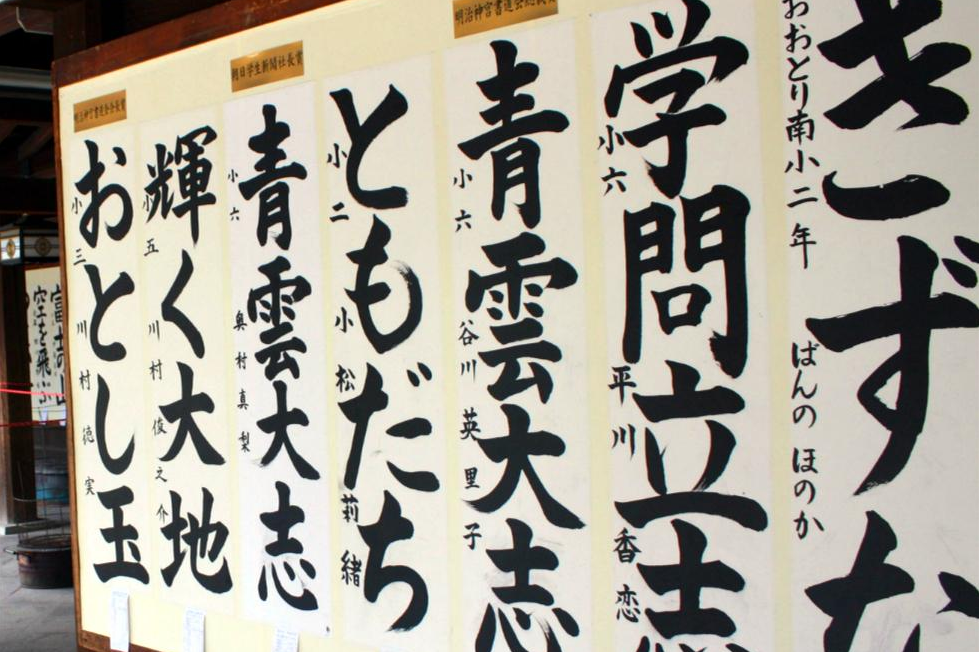 きずな
おおとり南小二年
ばんの ほのか
学問立志
小六
平川 香恋
明治神宮書道会総長賞
青雲大志
小六
谷川 英里子
ともだち
小二
小松 莉緒
朝日学生新聞社長賞
青雲大志
小六
奥村 真梨
輝く大地
小五
川村 俊之介
明治神宮書道会会長賞
おとし玉
小三
川村 徳実
富士の山
空を飛ぶ